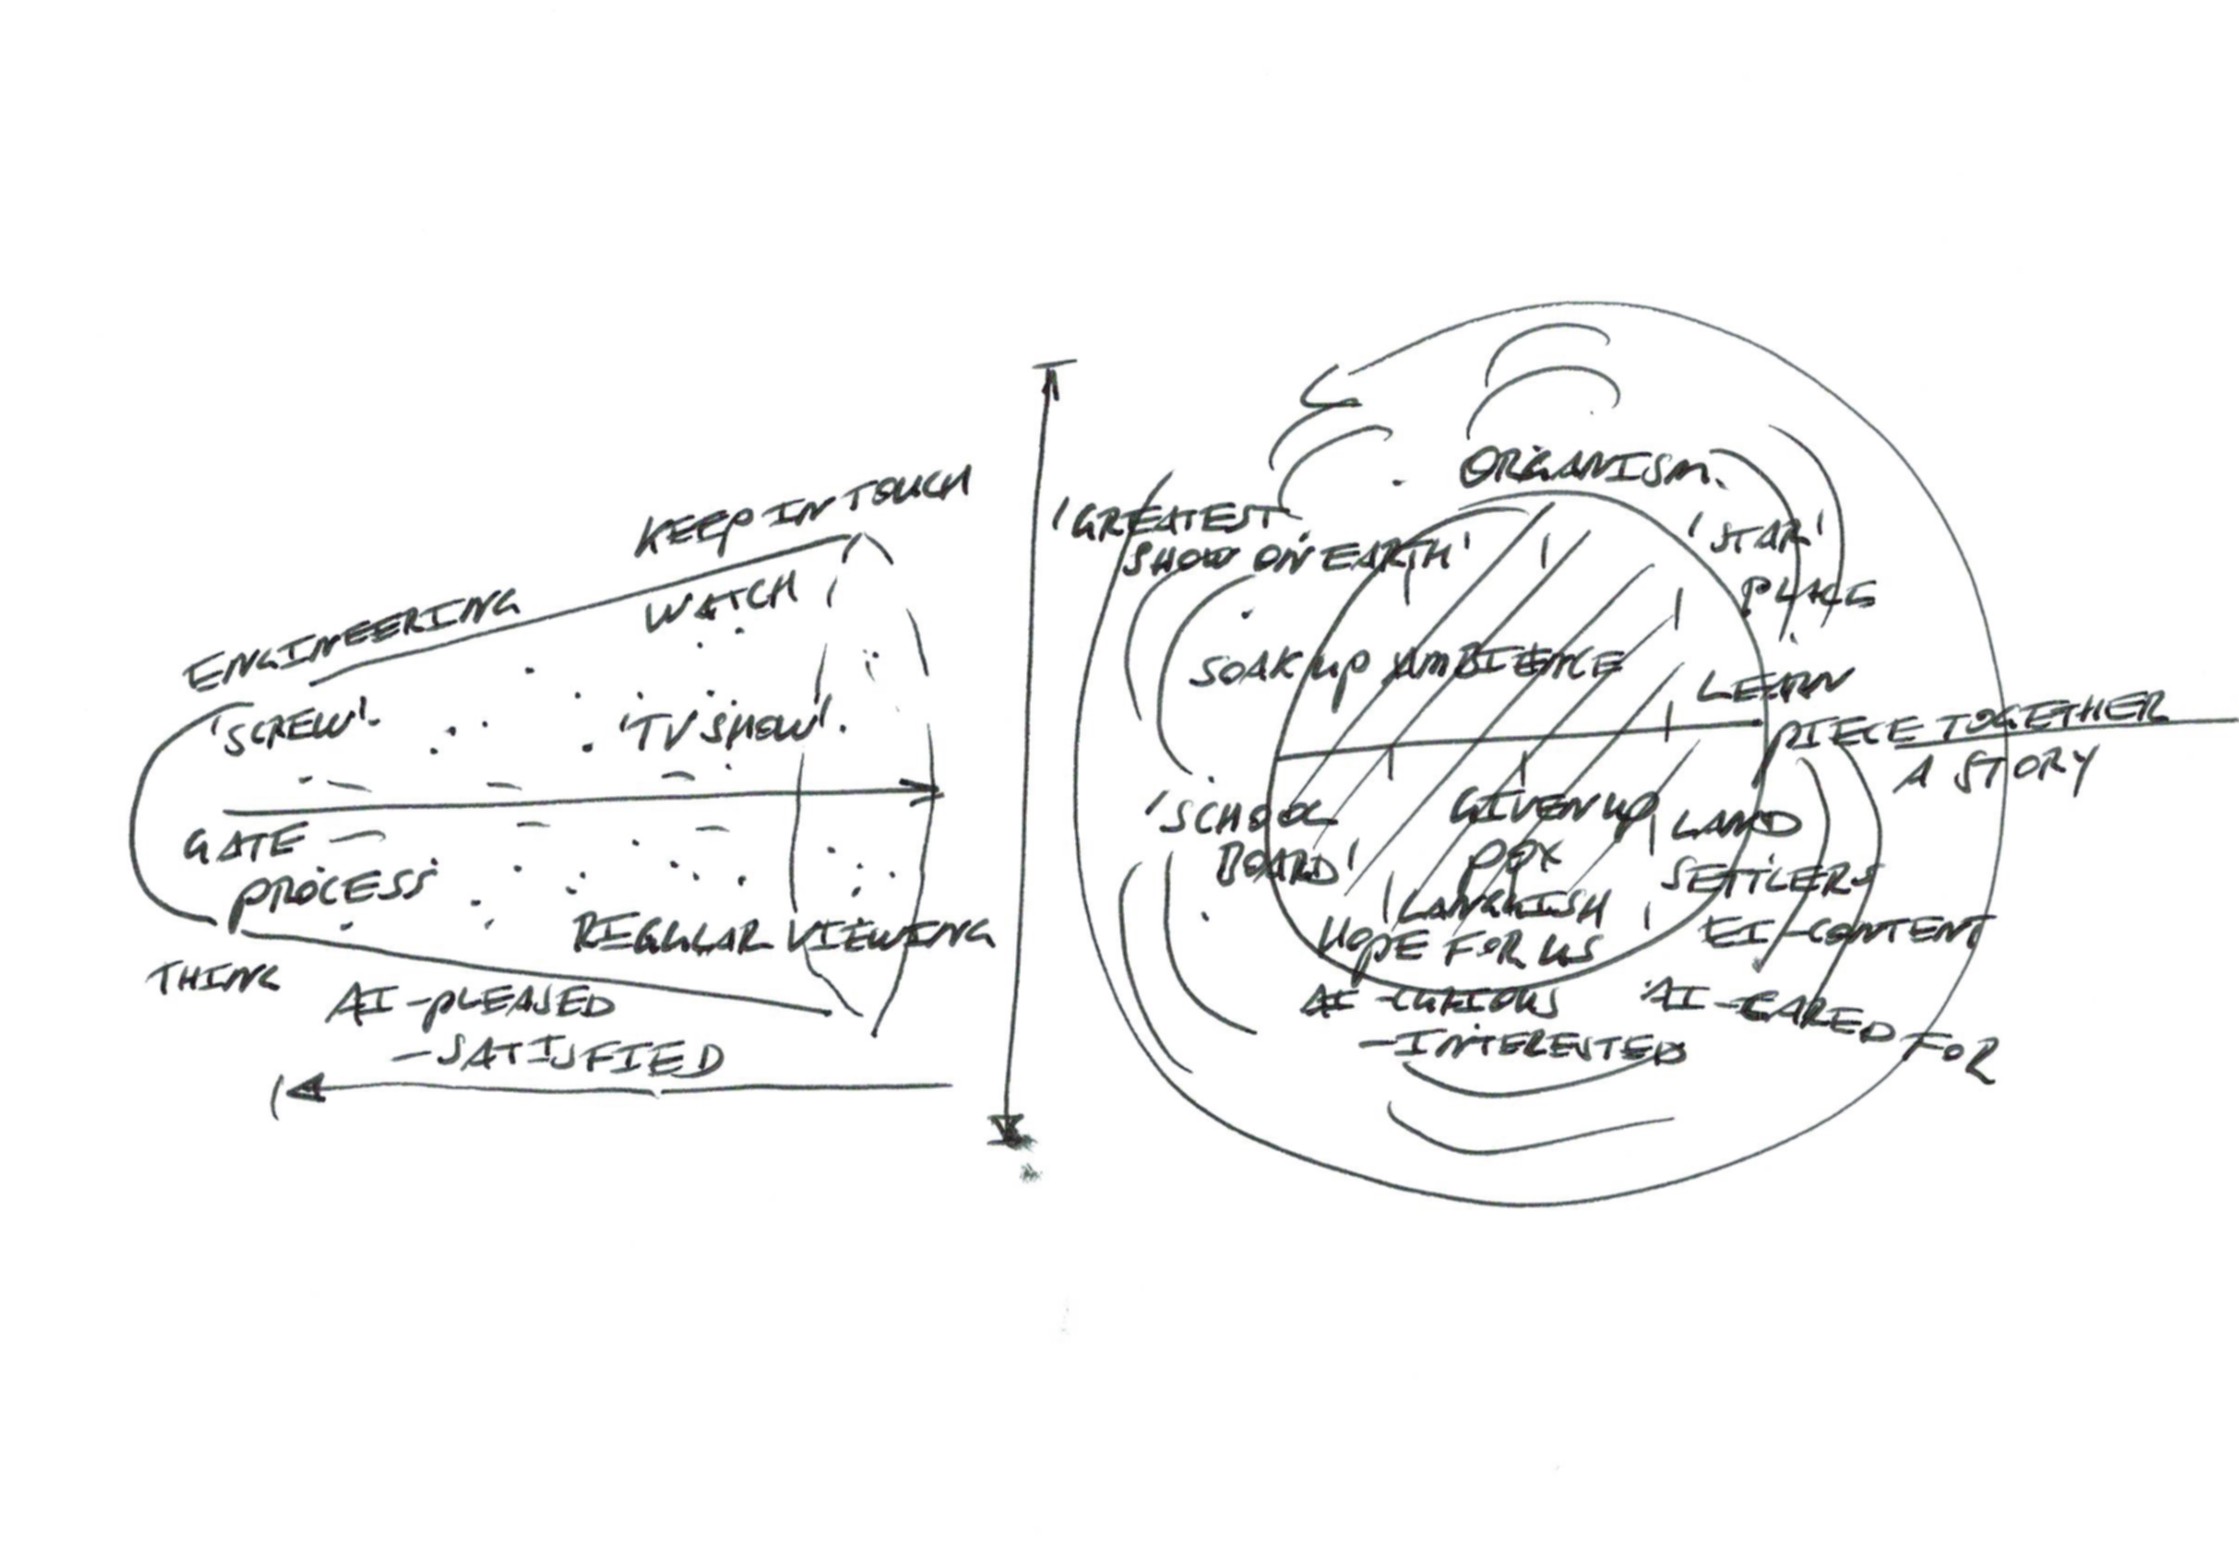 KEEP IN TOUCH
ENGINEERING
WATCH
'SCREW'.
'TV SHOW'.
GATE —
PROCESS
REGULAR VIEWING
THING
AI -PLEASED
-SATISFIED
ORGANISM.
'GREATEST
SHOW ON EARTH'
'STAR'
PLACE
SOAK UP AMBIENCE
LEARN
PIECE TOGETHER
A STORY
'SCHOOL
BOARD'
GIVEN UP
LANGUISH
HOPE FOR US
LAND
SETTLERS
EI -CONTENT
AI -CURIOUS
-INTERESTED
AI -CARED FOR